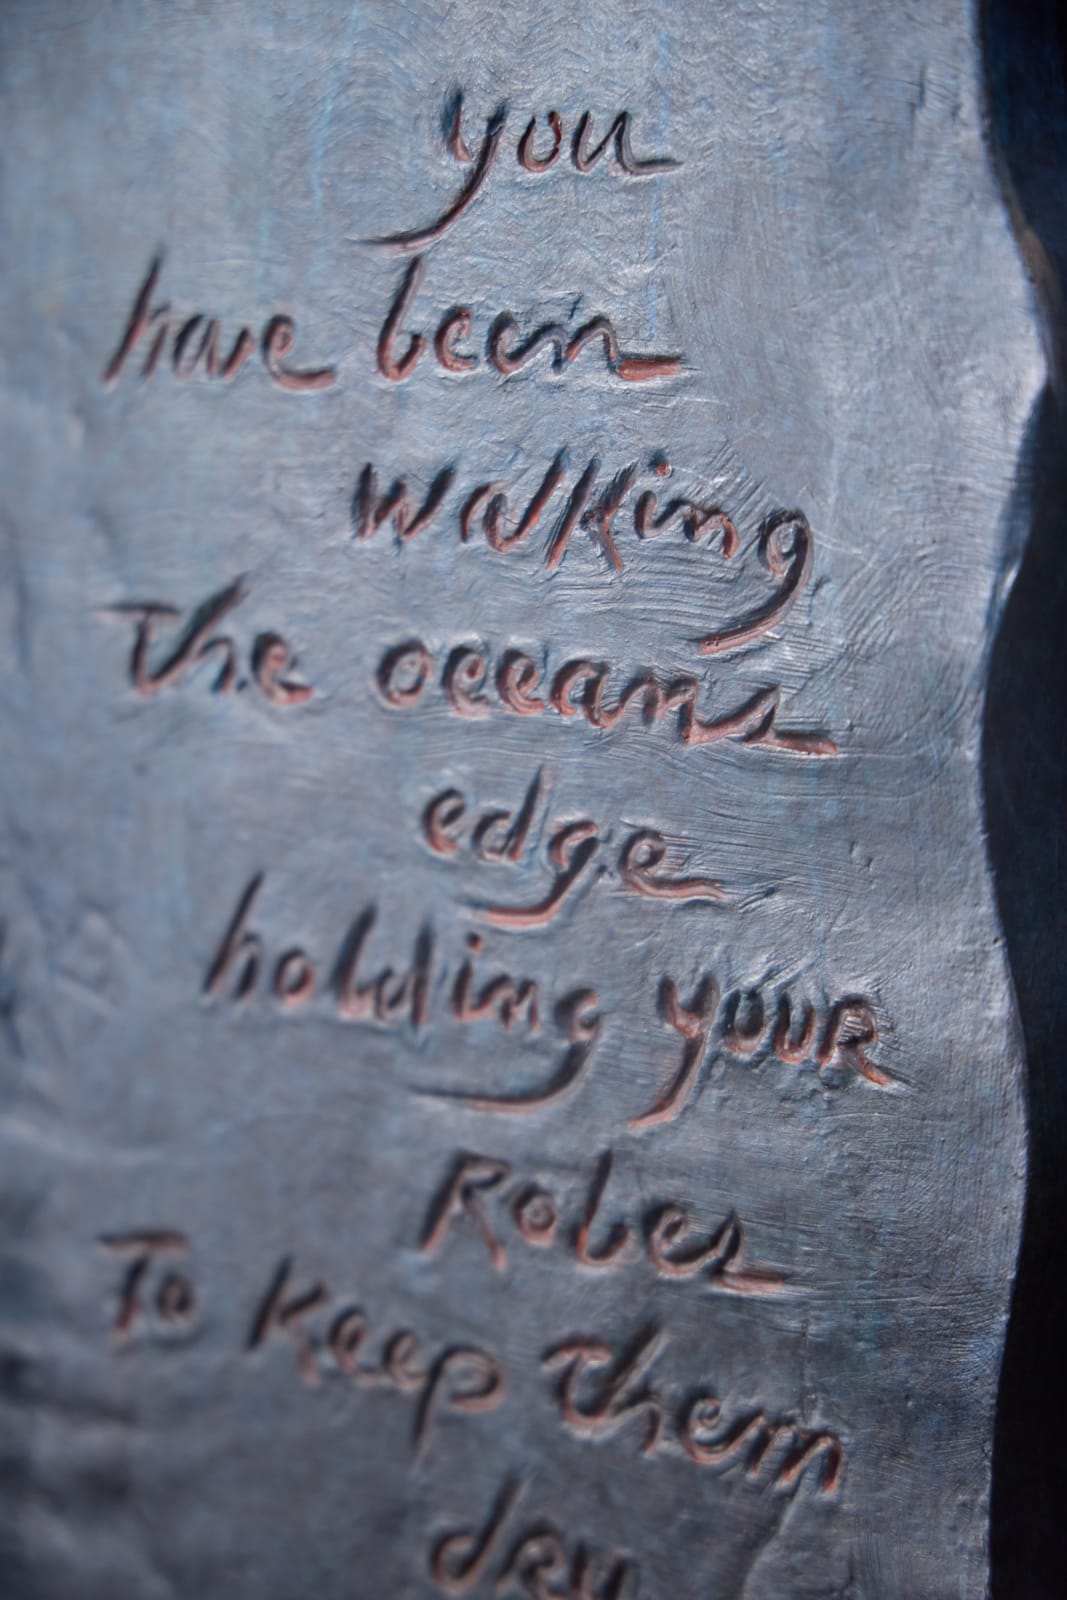 you
have been
walking
The oceans
edge
holding your
Robes
To Keep them
dry